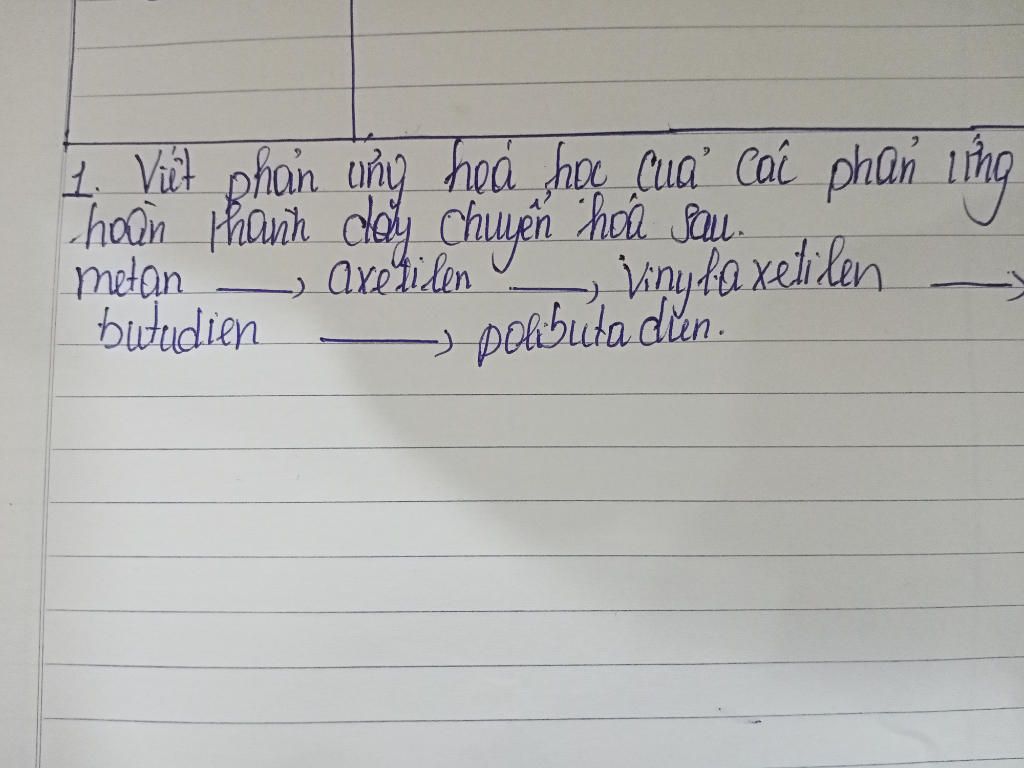 1. Viết phản ứng hoá học của các phản ứng
hoàn thành dãy chuyển hoá sau.
metan → axetilen → vinylaxetilen →
butadien → polibutadien.